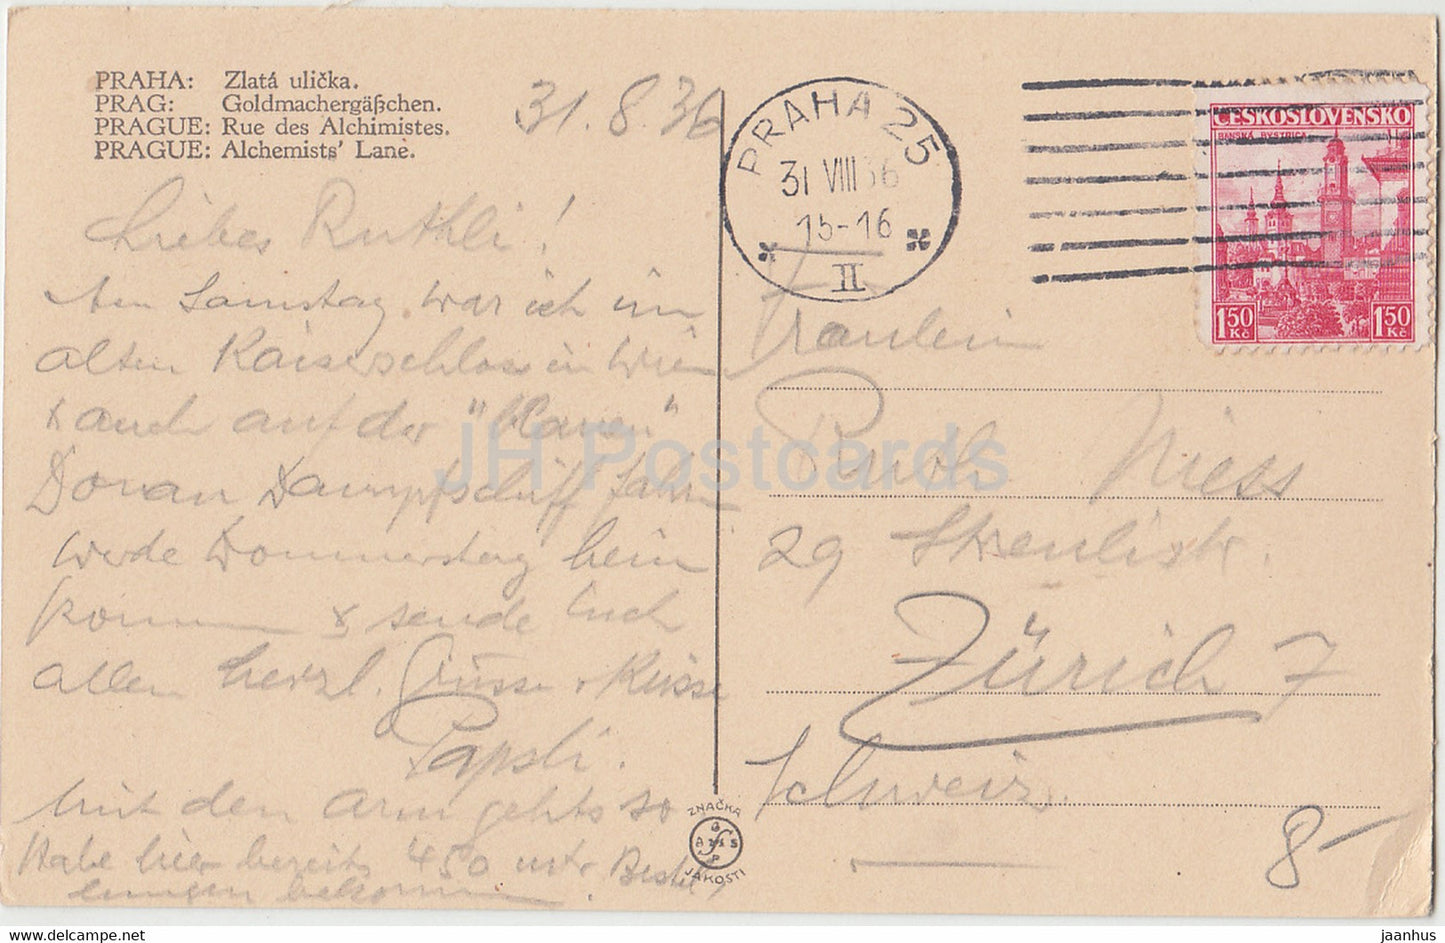 PRAHA: Zlatá ulička.
PRAG: Goldmachergäßchen.
PRAGUE: Rue des Alchimistes.
PRAGUE: Alchemists' Lane.
31.8.36
PRAHA 25
31 VIII 36
15-16
II
ČESKOSLOVENSKO
BANSKÁ BYSTRICA
1.50 Kč 1.50 Kč
Liebes Ruthli!
Am Samstag war ich im
alten Kaiserschloss in Wien
& auch auf der
Donau Dampfschiff fahren
werde Donnerstag heim
kommen & sende Euch
allen herzl. Grüsse & Küsse
Papsli.
Mit dem Arm gehts so
Habe hier bereits 450 mtr Bestel
lungen bekommen.
Fräulein
Ruth Niess
29 Streulistr.
Zürich 7
Schweiz
8-
ZNAČKA
JAKOSTI
JH Postcards
www.delcampe.net
jaanhus